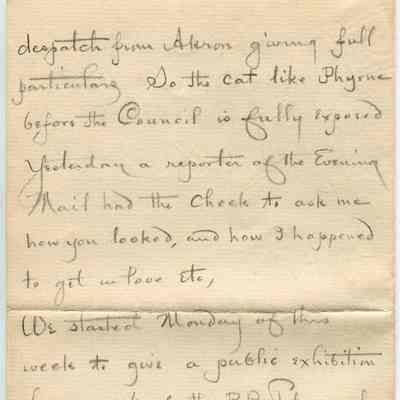 despatch from Akron giving full
particulars So the cat like Phryne
before the Council is fully exposed
Yesterday a reporter of the Evening
Mail had the Cheek to ask me
how you looked, and how I happened
to get in love etc,
We started Monday of this
week to give a public exhibition